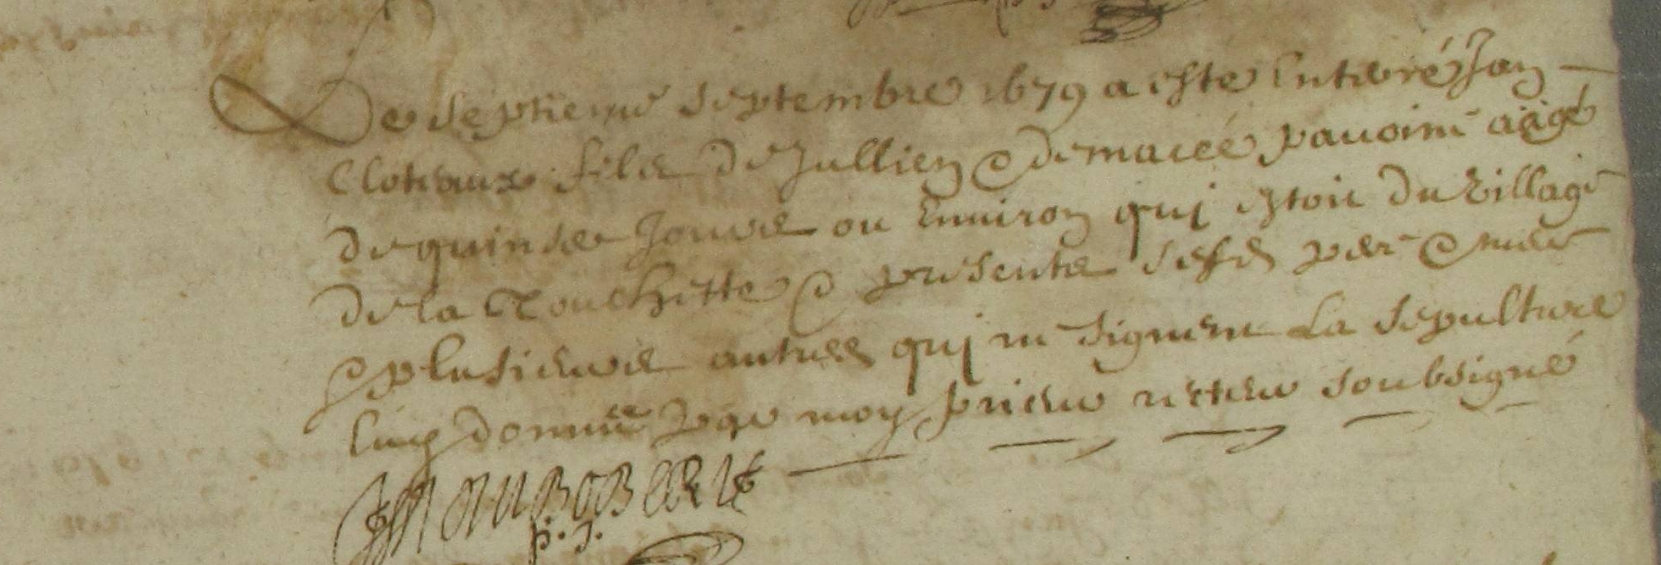 Le septieme septembre 1679 a este enterré Jan
Cloteaux fils de Jullien & de macée pavoine aagé
de quinse Jours ou Environ qui estoit du village
de la Touchette & presents sesd pere & mere
& plusieurs autres qui ne signent La sepulture
luy donnée par moy prieur recteur soubsigné
p. r.